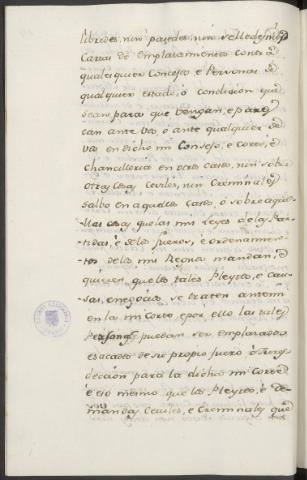 libredes, nin pasedes, nin
Cartas de emplazamiento contra
qualesquier Concejo, e Personas de
qualquier estado, ó condicion que
sean para que vengan, e pares-
can ante vos ó ante qualquier de
vos en dicho mi Consejo, e Corte, é
Chancilleria en otros casos, nin sobre
otras cosas Ceviles, nin Criminales
salbo en aquellos casos, ó sobre aque-
llas cosas que las mis leyes de las Par-
tidas, e de los fueros, e ordenamien-
tos de los mis Reynos mandan, é
quieren que los tales Pleytos, e cau-
sas, e negocios se traten ante mi
en la mi Corte, e por ello las tales
Personas puedan ser emplazados
e sacados de su propio fuero ó Juris-
dicción para la dicha mi Corte
é eso mesmo que los Pleytos, é De-
mandas Ceviles, e Creminales que